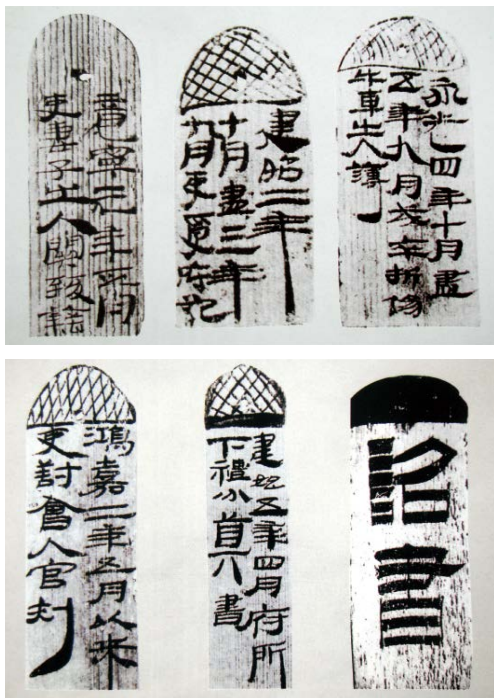 竟寧元年正月
吏妻子出入關致籍
建昭二年
十月盡三年
九月吏受府記
永光四年十月盡
五年九月戍卒折傷
牛車出入簿
鴻嘉二年五月以來
吏對會入官刺
五年四月府所
下禮分書
詔書